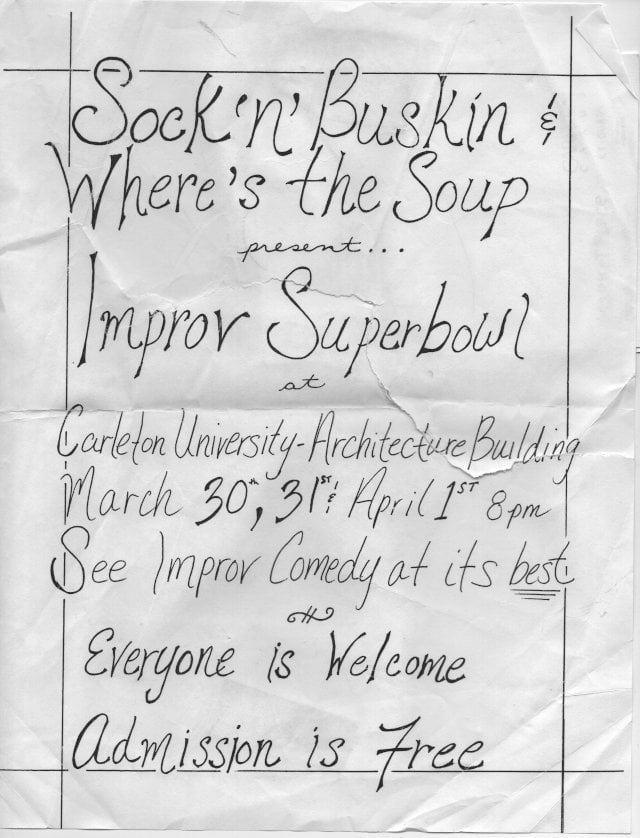 Sock 'n' Buskin &
Where's the Soup
present...
Improv Superbowl
at
Carleton University-Architecture Building
March 30th, 31st & April 1st 8pm
See Improv Comedy at its best
Everyone is Welcome
Admission is Free